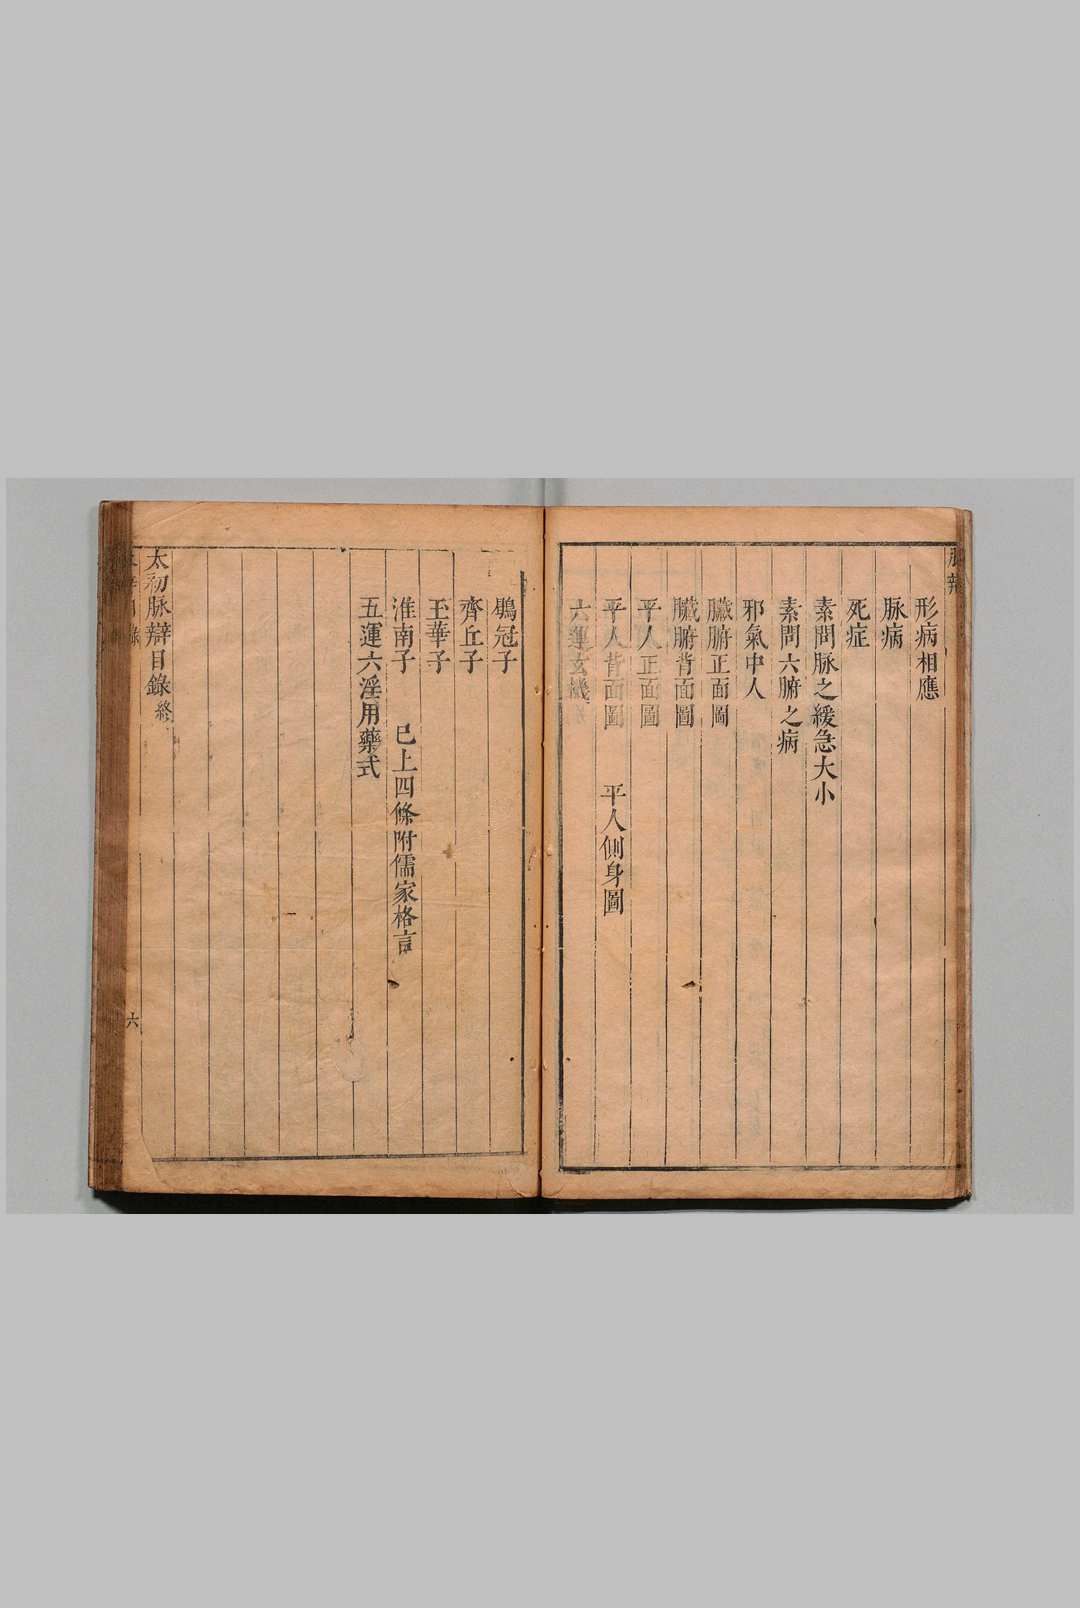 形病相應
脉病
死症
素問脉之緩急大小
素問六腑之病
邪氣中人
臟腑正面圖
臟腑背面圖
平人正面圖
平人背面圖　平人側身圖
六運玄機
鶡冠子
齊丘子
玉華子
淮南子　已上四條附儒家格言
五運六淫用藥式
太初脉辯目錄終
六